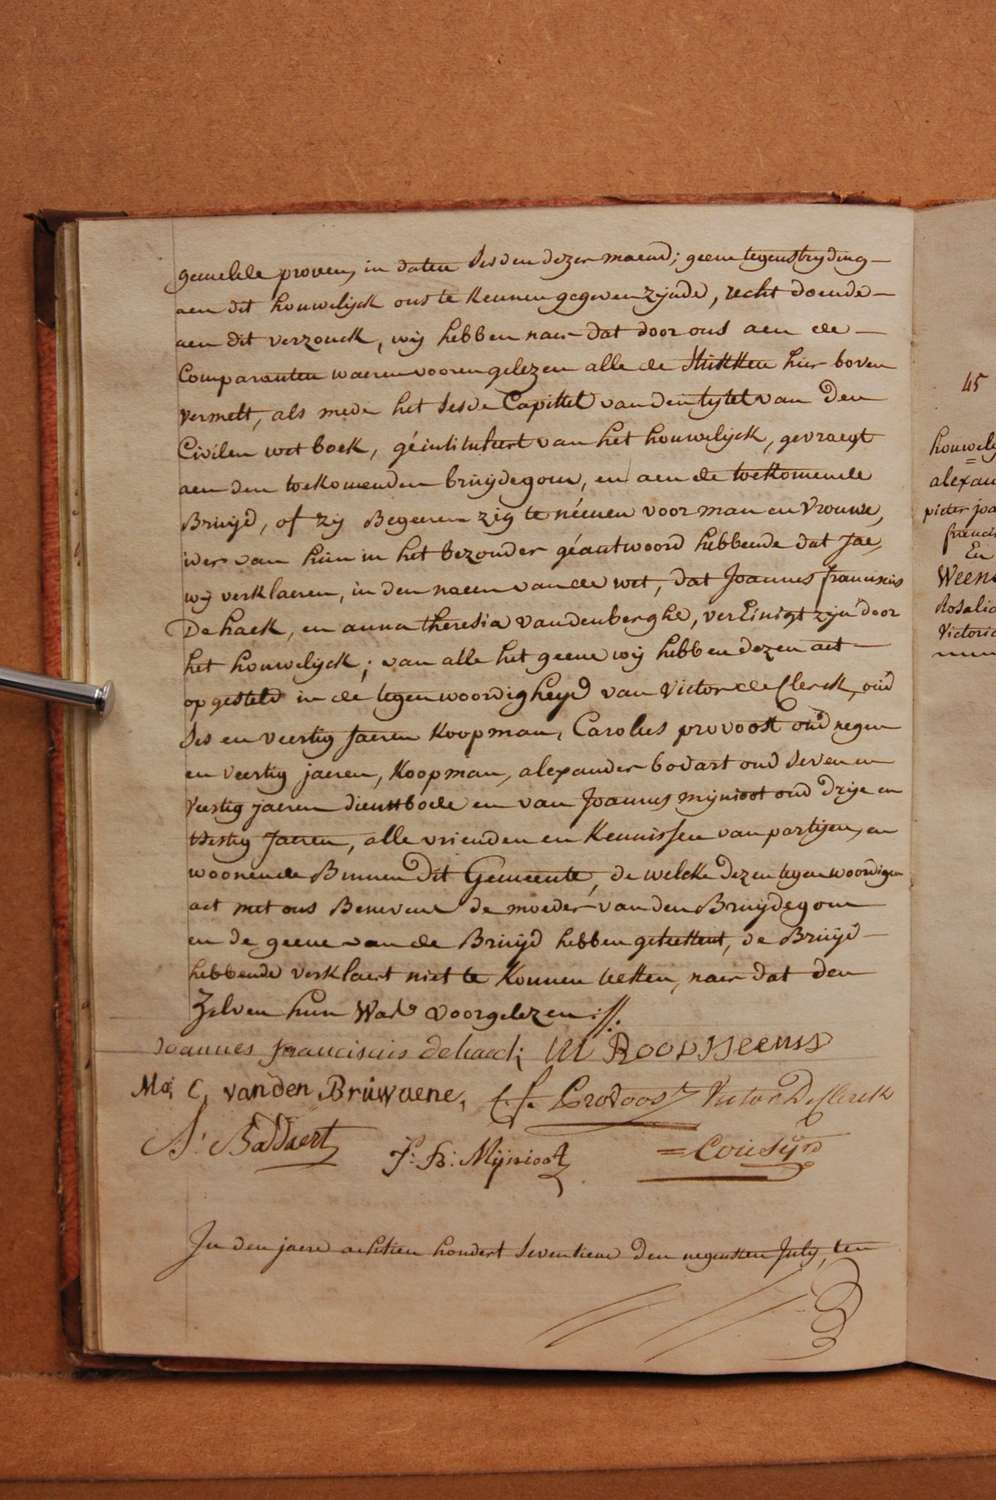 gemelde proven, in daten sesden dezer maend; geene tegenstryding
aen dit houwelijck ons te kennen gegeven zijnde, recht doende
aen dit verzouck, wij hebben naer dat door ons aen de
Comparanten waeren vooren gelezen alle de stukken hier boven
vermelt, als mede het sesde Capittel van den tytel van den
Civilen wetboek, géintituleert van het houwelijck, gevraegt
aen den toekomenden bruijdegom, en aen de toekomende
Bruijd, of zij Begeeren zig te néemen voor man en Vrouwe,
ider van hun in het bezonder géantwoord hebbende dat Jae,
wij verklaeren, in den naem van de wet, dat Joannes franciscus
De haek, en anna theresia vandenberghe, verEinigt zijn door
het houwelijck; van alle het geene wij hebben dezen act
opgesteld in de tegenwoordigheyd van Victor de Clerck, oud
ses en veertig Jaeren Koopman, Carolus provoost oud negen
en veertig jaeren, Koopman, alexander bodart oud seven en
veertig jaeren dienstbode en van Joannes mijnioot oud drije en
Jaeren, alle vrienden en Kennissen van partijen, en
woonende Binnen dit Gemeente, de welcke dezen tegenwoordigen
act met ons Benevens de moeder van den Bruijdegom
en de geene van de Bruijd hebben geteekent, de Bruijd
hebbende verklaert niet te Konnen teeken, naer dat den
Zelven hun Was voorgelezen ://.
Joannes franciscuis dehaeck;
Ma; C, vanden Brúwaene, C. f. Provoost Victor De Clerck
A: Baddaert J: Fr: Mijnioot
In den jaere achtien hondert seventiene den negensten July, ten
45
houwelij
=
alexan
pieter joa
francis
En
Weens
Rosalia
Victoria